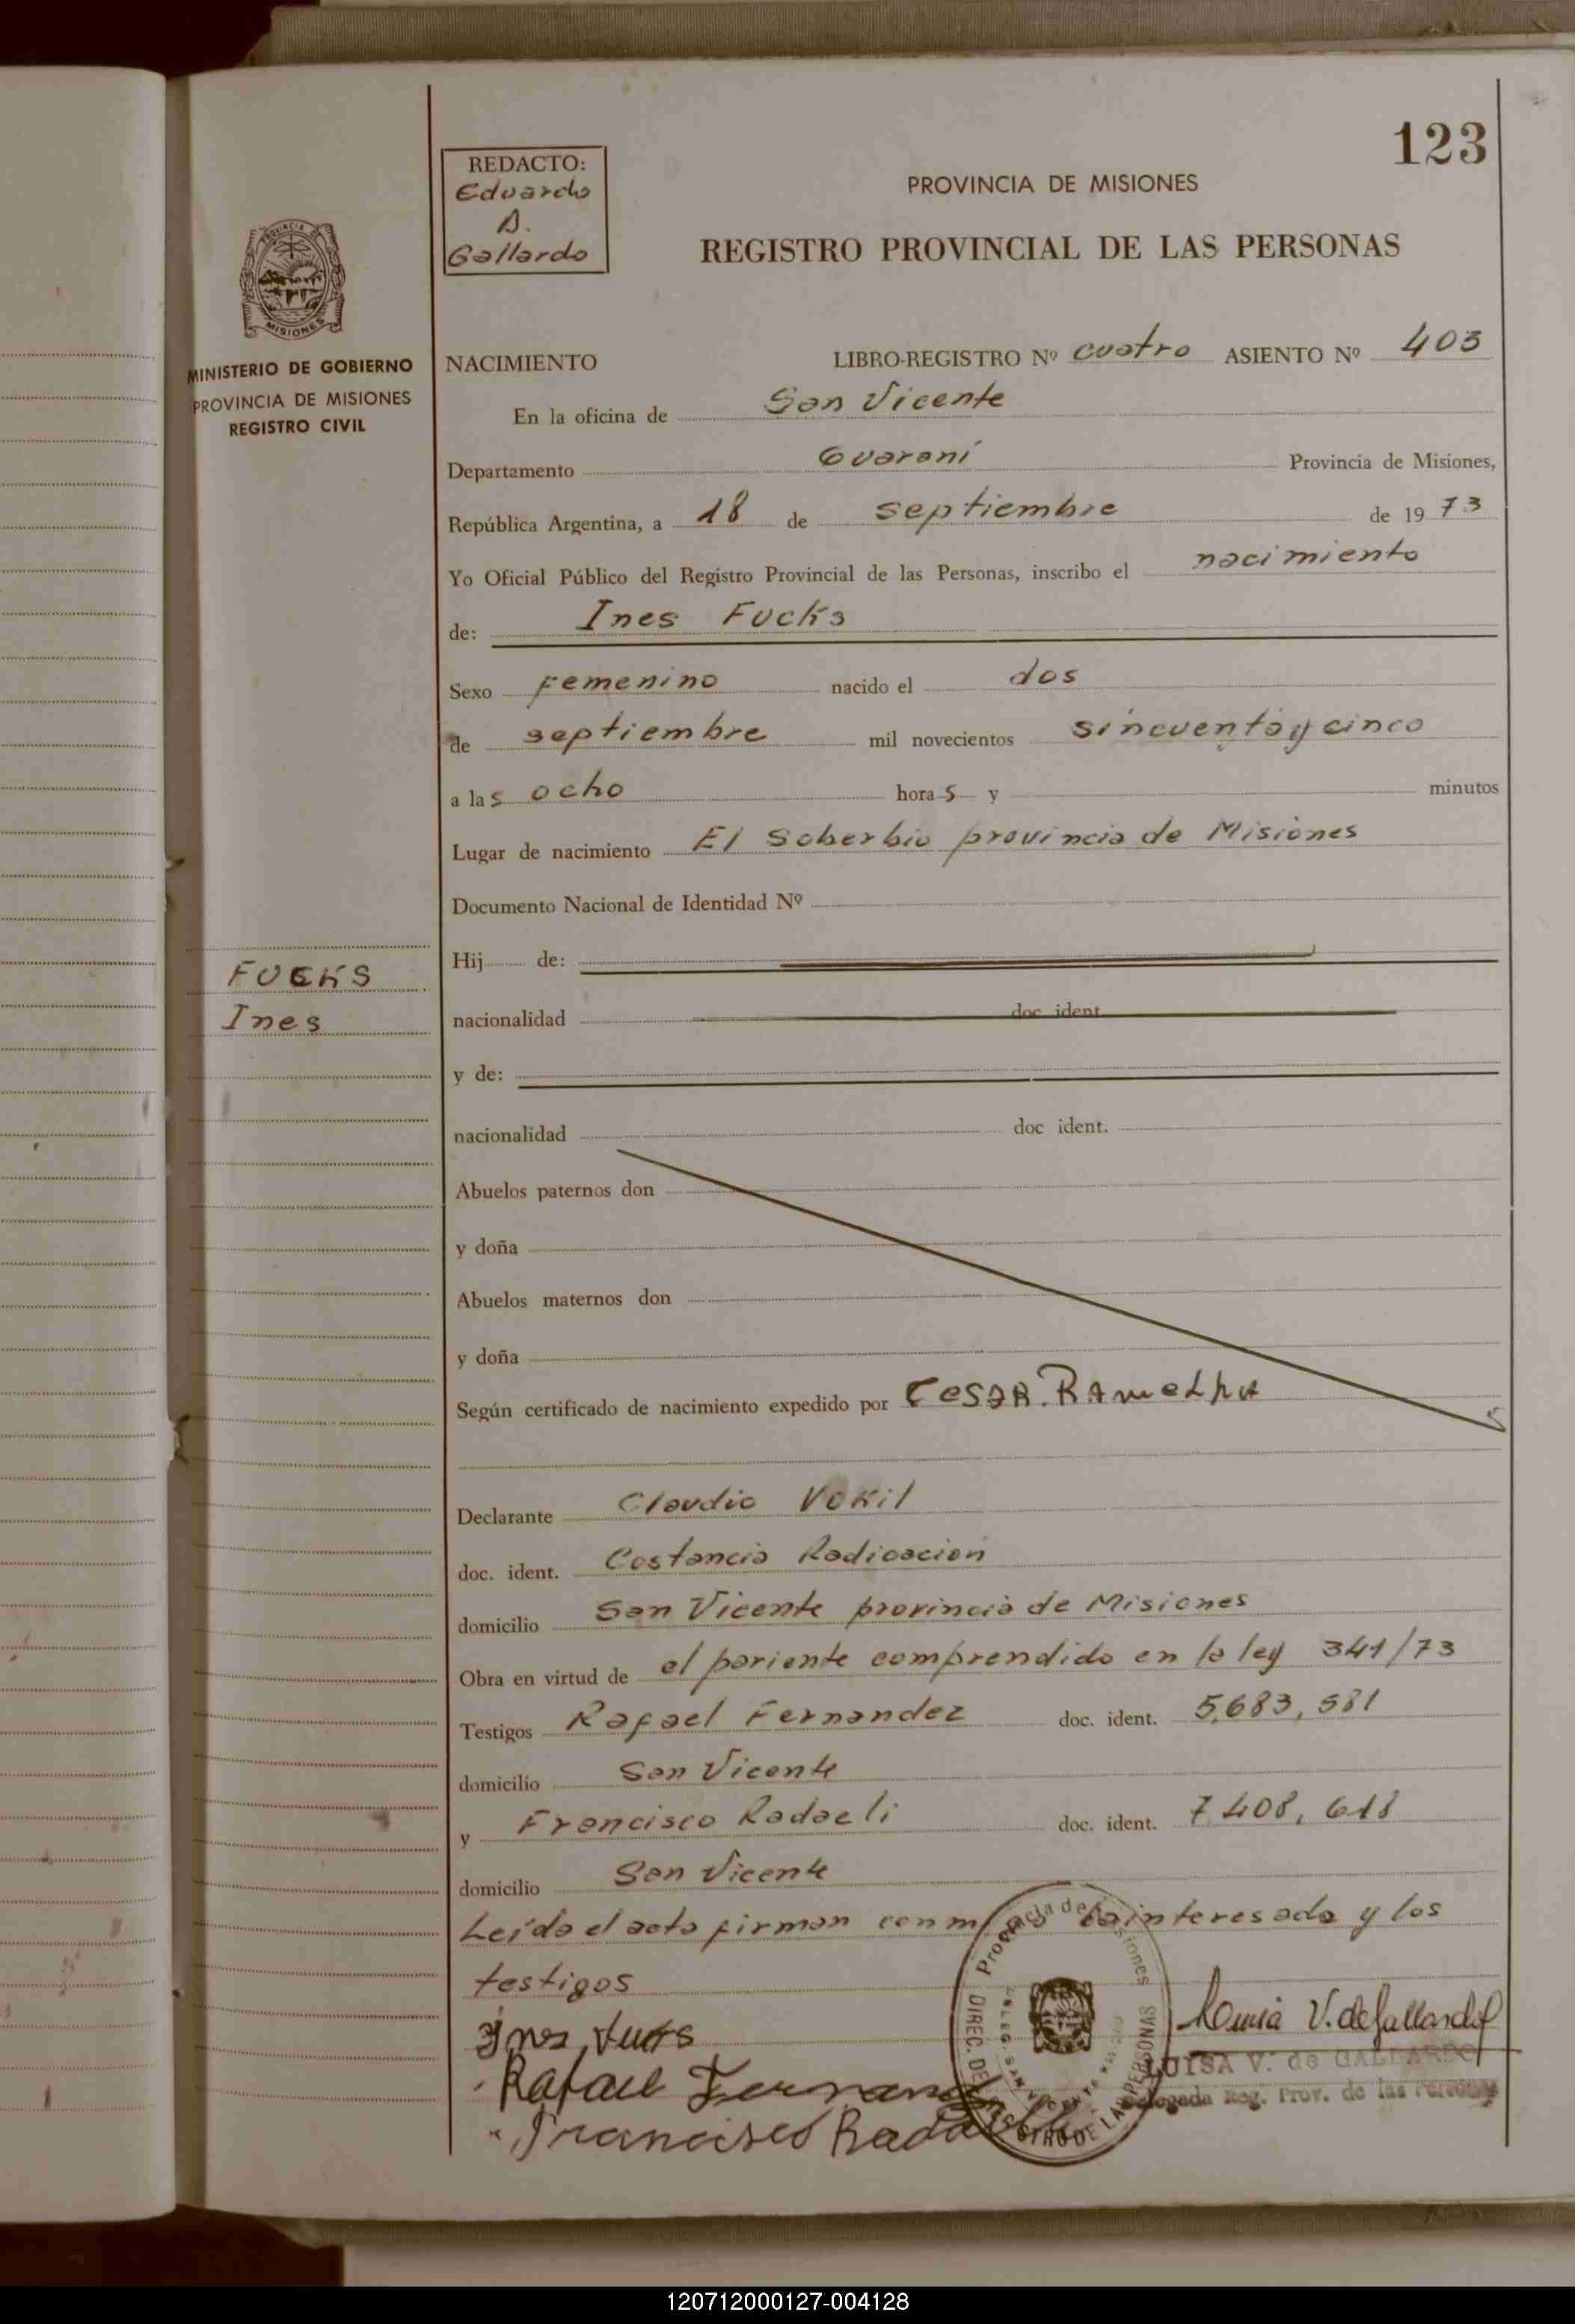 123
REDACTO:
Eduardo
A.
Gallardo
PROVINCIA DE MISIONES
REGISTRO PROVINCIAL DE LAS PERSONAS
PROVINCIA DE
MISIONES
MINISTERIO DE GOBIERNO
PROVINCIA DE MISIONES
REGISTRO CIVIL
NACIMIENTO LIBRO-REGISTRO Nº cuatro ASIENTO Nº 403
En la oficina de San Vicente
Departamento Guaraní Provincia de Misiones,
República Argentina, a 18 de septiembre de 1973
Yo Oficial Público del Registro Provincial de las Personas, inscribo el nacimiento
de: Ines Fucks
Sexo femenino nacido el dos
de septiembre mil novecientos sincuenta y cinco
a las ocho horas y minutos
Lugar de nacimiento El Soberbio provincia de Misiones
Documento Nacional de Identidad Nº
Hij de:
FUCKS
Ines
nacionalidad doc ident.
y de:
nacionalidad doc ident.
Abuelos paternos don
y doña
Abuelos maternos don
y doña
Según certificado de nacimiento expedido por CESAR.
Declarante Claudio Vokil
doc. ident. Costancia Radicacion
domicilio San Vicente provincia de Misiones
Obra en virtud de el pariente comprendido en la ley 341/73
Testigos Rafael Fernandez doc. ident. 5,683,581
domicilio San Vicente
y Francisco Radaeli doc. ident. 7408,618
domicilio San Vicente
Leída el acta firman conmigo la interesada y los
testigos
Provincia de Misiones
DIREC. DE REGISTRO DE LAS PERSONAS
Ines Fucks
Rafael Fernandez
Francisco Radaeli
V. de Gallardo
LUISA V. de GALLARDO
Delegada Reg. Prov. de las Personas
120712000127-004128